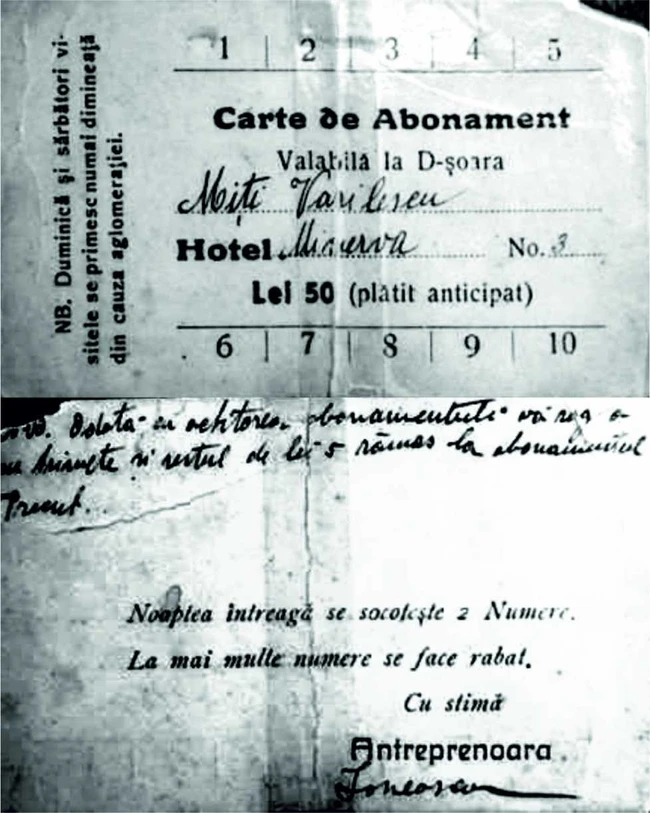 1 | 2 | 3 | 4 | 5
NB. Duminică și sărbători vi-
sitele se primesc numai dimineață
din cauza aglomerației.
Carte de Abonament
Valabilă la D-șoara
Miți Vasilescu
Hotel Minerva No. 3
Lei 50 (plătit anticipat)
6 | 7 | 8 | 9 | 10
Odata cu achitarea abonamentului vă rog a
trimite și restul de lei 5 rămas la abonamentul
Noaptea întreagă se socotește 2 Numere.
La mai multe numere se face rabat.
Cu stimă
Antreprenoara
Ionescu